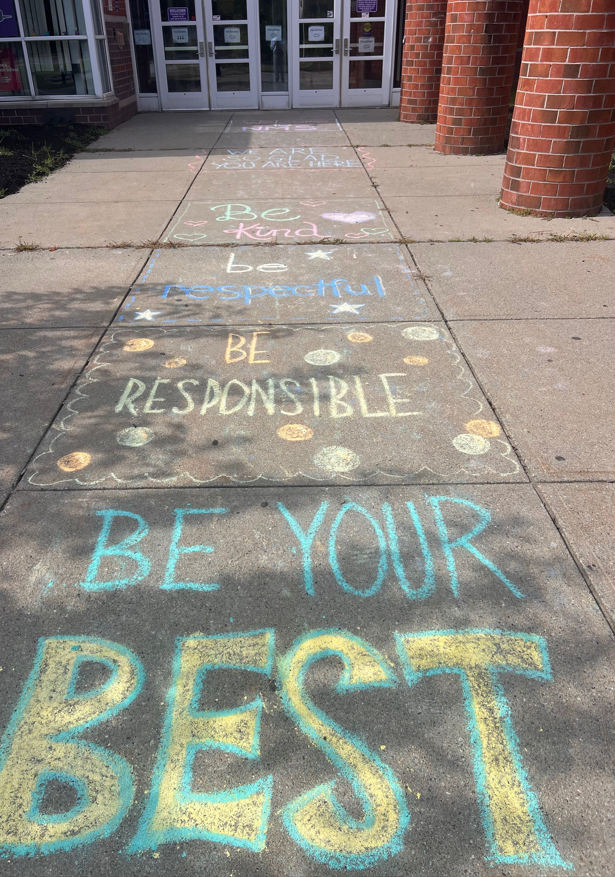 NMS
WE ARE
SO GLAD
YOU ARE HERE
Be
Kind
be
respectful
BE
RESPONSIBLE
BE YOUR
BEST